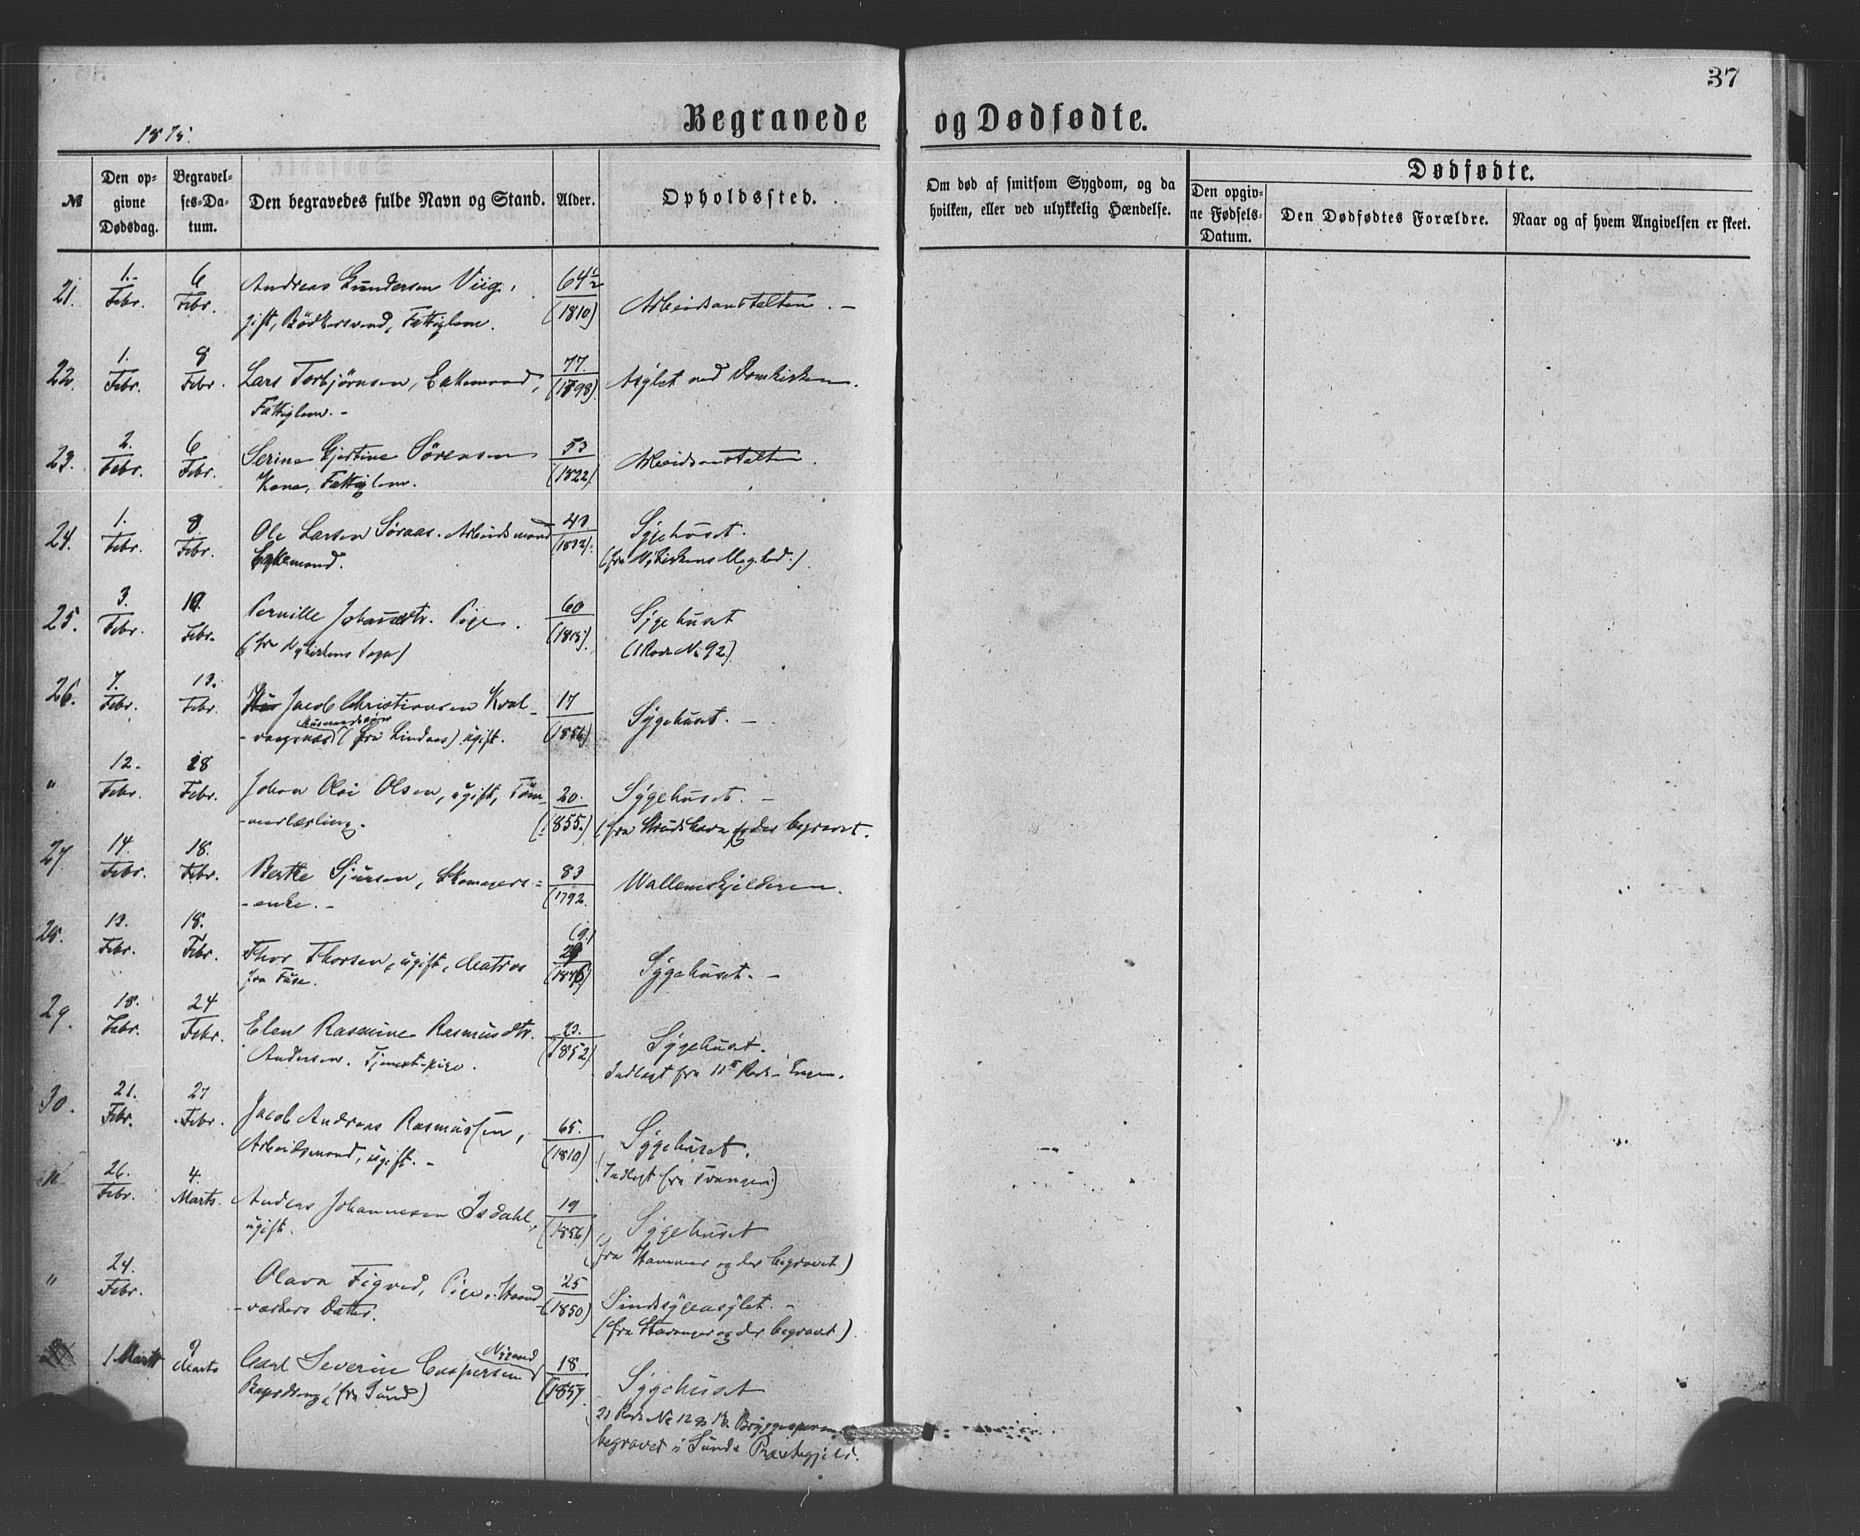 37
Begravede og Dødfødte.
1875.
№
Den opgivne Dødsdag.
Begravelses-Datum.
Den begravedes fulde Navn og Stand.
Alder.
Opholdssted.
Om død af smitsom Sygdom, og da hvilken, eller ved ulykkelig Hændelse.
Dødfødte.
Den opgivne Fødsels-Datum.
Den Dødfødtes Forældre.
Naar og af hvem Angivelsen er skeet.
21. 1. Febr. 6 Febr. Andreas Gundersen Viig, 64½ Arbeidsanstalten. -
gift, Bødkersvend, Fattiglem. (1810)
22. 1. Febr. 8 Febr. Lars Torbjørnsen, Enkemand, 77 Asylet ved Domkirken.
Fattiglem. - (1898)
23. 2. Febr. 6 Febr. Serine Gjertine Sørensen 53 Arbeidsanstalten.
Kone, Fattiglem. (1822)
24. 1. Febr. 8 Febr. Ole Larsen Søraas. Arbeidsmand 43 Sygehuset.
Enkemand. (1832) (fra Nykirkens Meghed.)
25. 3. Febr. 10. Febr. Pernille Johansdtr. Pige. 60 Sygehuset
(fra Nykirkens Sogn) (1815) (1 Rode No 92)
26. 7. Febr. 13. Febr. Jacob Christiansen Kval- 17 Sygehuset. -
Husmandssøn
-vaagnæs (fra Lindaas) ugift. (1856)
" 12. Febr. 28 Febr. Johan Olai Olsen, ugift, Tøm- 20. Sygehuset. -
-merlærling. (1855.) (fra Strudshavn og der begravet.
27 14. Febr. 18. Febr. Berthe Sjursen, Skomagers- 83 Wallemskjelderen.
-enke. - (1792.
28. 13. Febr. 18. Febr. Thor Thorsen, ugift, Matros 29 Sygehuset. -
fra Fuse. (1846)
29. 18. Febr. 24 Febr. Elen Rasmine Rasmusdtr. 23. Sygehuset.
Andersen. Tjenestpige. (1852) Indlagt fra 11te Rode - Engen.
30. 21. Febr. 27 Febr. Jacob Andreas Rasmussen, 65. Sygehuset.
Arbeidsmand, ugift. - (1810) (Indlagt fra Svangen)
26. Febr. 4. Marts. Anders Johannesen Isdahl, 19 Sygehuset
ugift. (1856) (fra Hammer og der begravet)
" 24. Febr. Olava Figved, Pige, Haand- 25 Sindssygeasylet. -
-værkers Datter. (1850) (fra Stavanger og der begravet).
1 Marts 9 Marts Carl Severin Caspersen 18 Sygehuset
(fra Sund) (1857 21 Rode No 12 Bryggesporen
begravet i Sunds Præstegjeld.